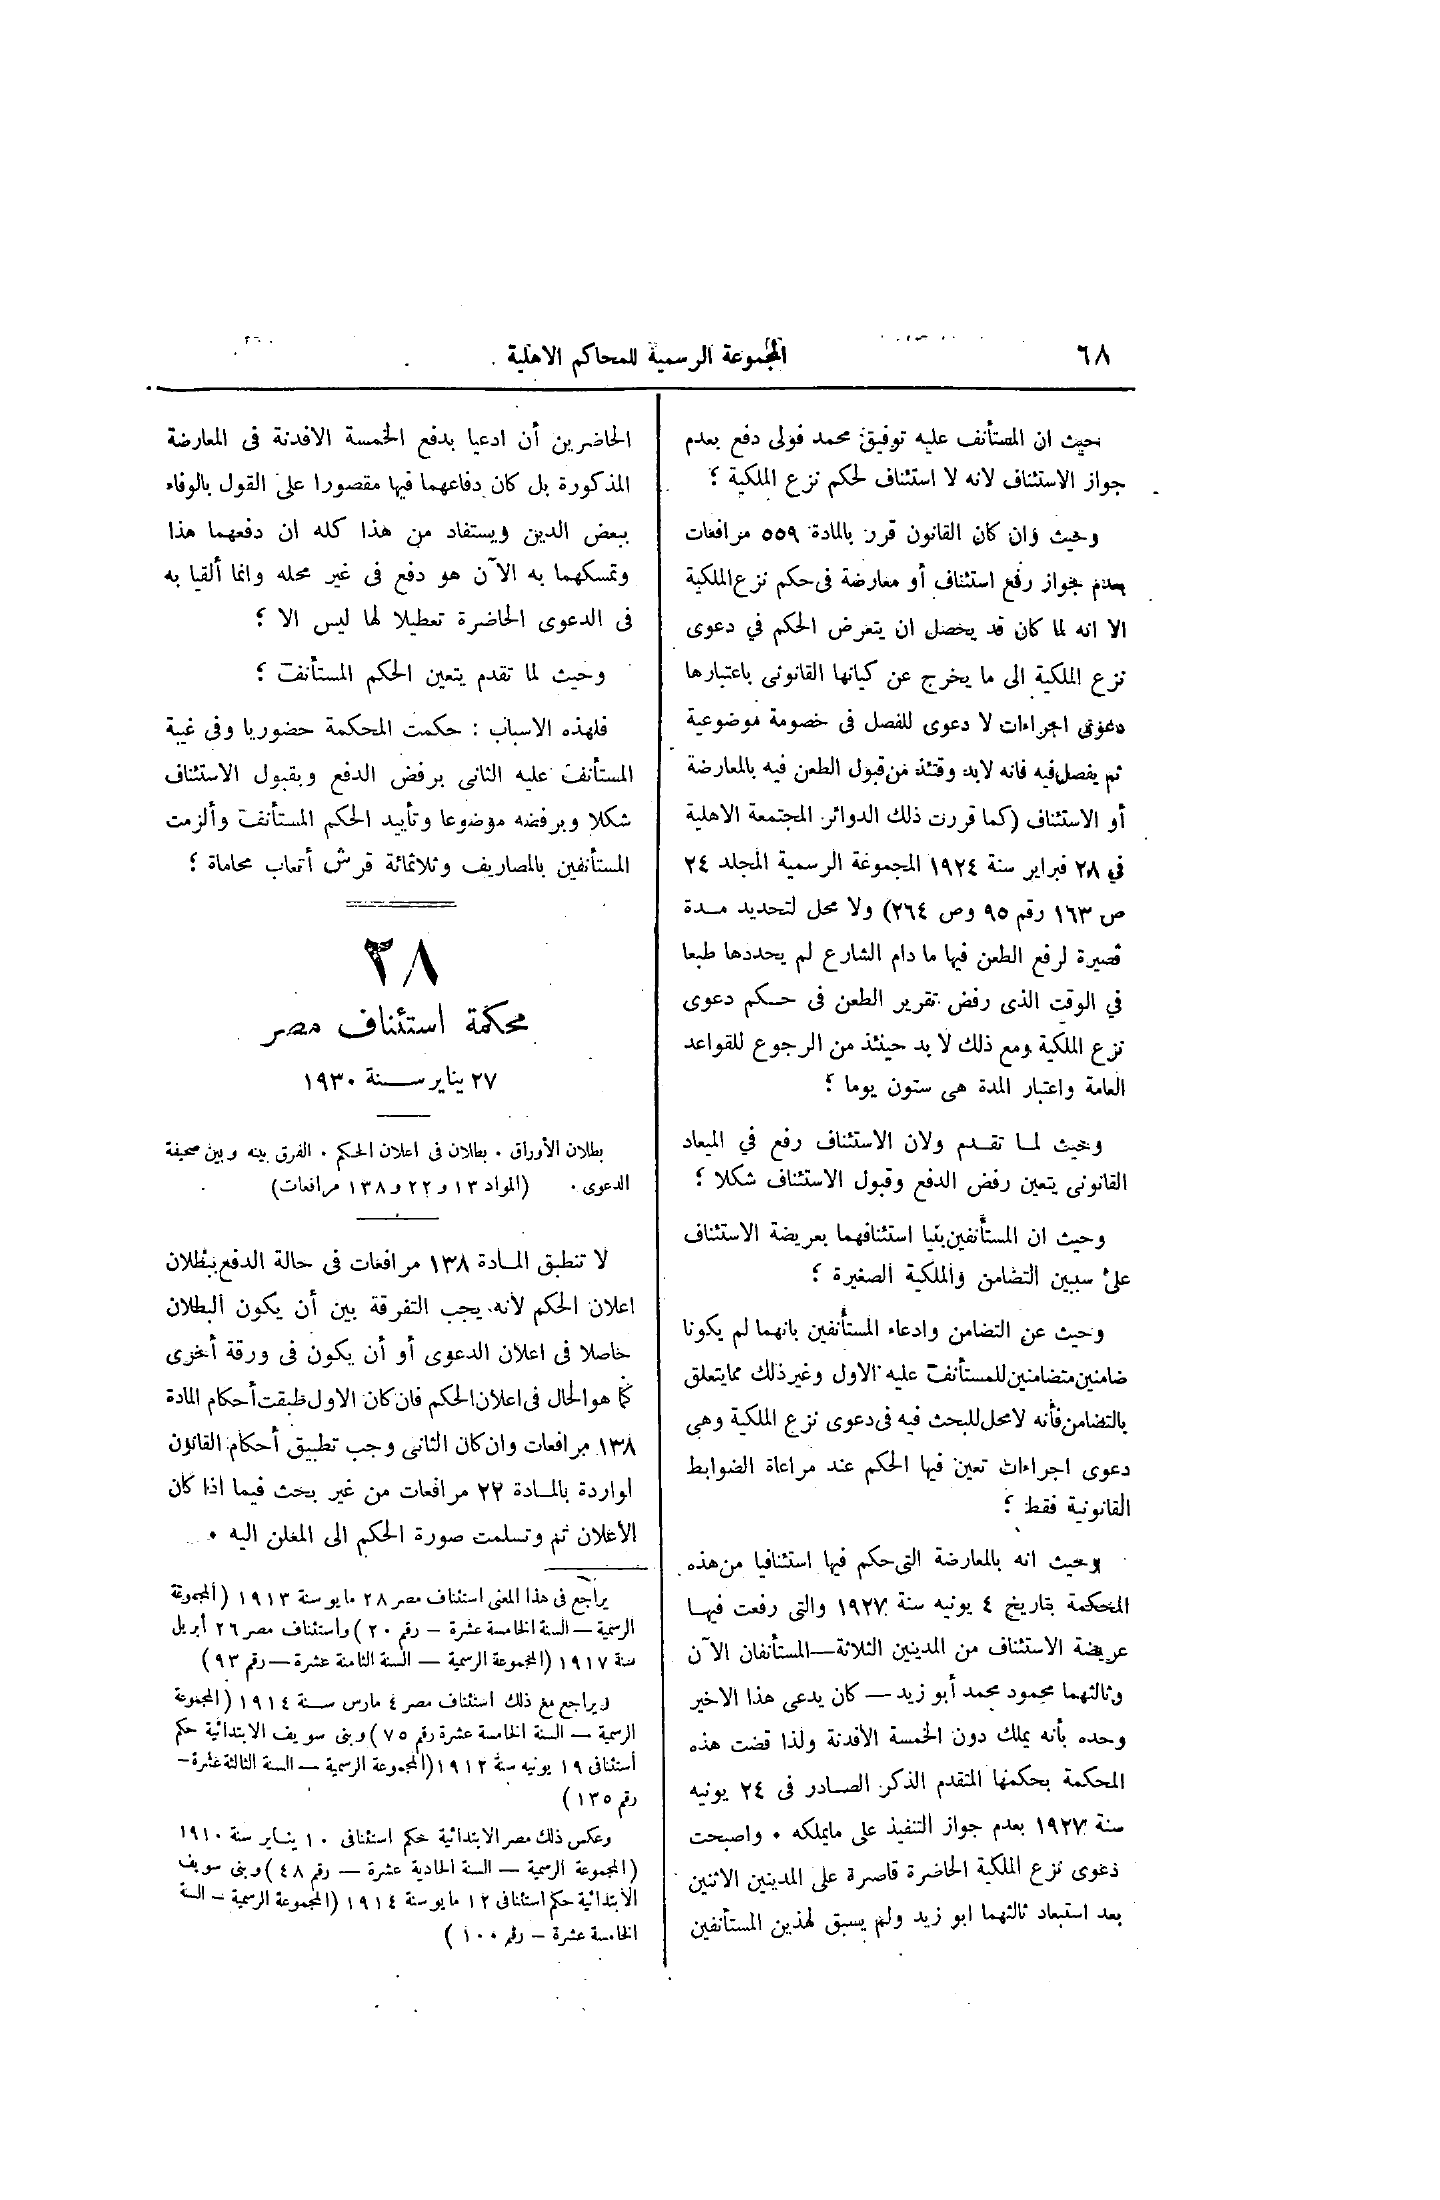 ٦٨
المجموعة الرسمية للمحاكم الاهلية
حيث ان المستأنف عليه توفيق محمد فولى دفع بعدم
جواز الاستئناف لانه لا استئناف لحكم نزع الملكية ؛
وحيث وان كان القانون قرر بالمادة ٥٥٩ مرافعات
بعدم جواز رفع استئناف أو معارضة فى حكم نزع الملكية
الا انه لما كان قد يحصل ان يتعرض الحكم في دعوى
نزع الملكية الى ما يخرج عن كيانها القانونى باعتبارها
دعوى اجراءات لا دعوى للفصل فى خصومة موضوعية
ثم يفصل فيه فانه لابد وقتئذ من قبول الطعن فيه بالمعارضة
أو الاستئناف (كما قررت ذلك الدوائر المجتمعة الاهلية
في ٢٨ فبراير سنة ١٩٢٤ المجموعة الرسمية المجلد ٢٤
ص ١٦٣ رقم ٩٥ وص ٢٦٤) ولا محل لتحديد مدة
قصيرة لرفع الطعن فيها ما دام الشارع لم يحددها طبعا
في الوقت الذى رفض تقرير الطعن فى حكم دعوى
نزع الملكية ومع ذلك لا بد حينئذ من الرجوع للقواعد
العامة واعتبار المدة هى ستون يوما ؛
وحيث لما تقدم ولان الاستئناف رفع في الميعاد
القانونى يتعين رفض الدفع وقبول الاستئناف شكلا ؛
وحيث ان المستأنفين بنيا استئنافهما بعريضة الاستئناف
على سببين التضامن والملكية الصغيرة ؛
وحيث عن التضامن وادعاء المستأنفين بانهما لم يكونا
ضامنين متضامنين للمستأنف عليه الاول وغير ذلك مما يتعلق
بالتضامن فأنه لا محل للبحث فيه فى دعوى نزع الملكية وهى
دعوى اجراءات تعين فيها الحكم عند مراعاة الضوابط
القانونية فقط ؛
وحيث انه بالمعارضة التى حكم فيها استئنافيا من هذه
المحكمة بتاريخ ٤ يونيه سنة ١٩٢٧ والتى رفعت فيها
عريضة الاستئناف من المدينين الثلاثة — المستأنفان الآن
وثالثهما محمود محمد أبو زيد — كان يدعى هذا الاخير
وحده بأنه يملك دون الخمسة الأفدنة ولذا قضت هذه
المحكمة بحكمها المتقدم الذكر الصادر فى ٢٤ يونيه
سنة ١٩٢٧ بعدم جواز التنفيذ على مايملكه ٠ واصبحت
دعوى نزع الملكية الحاضرة قاصرة على المدينين الاثنين
بعد استبعاد ثالثهما ابو زيد ولم يسبق لهذين المستأنفين
الحاضرين أن ادعيا بدفع الخمسة الافدنة فى المعارضة
المذكورة بل كان دفاعهما فيها مقصورا على القول بالوفاء
ببعض الدين ويستفاد من هذا كله ان دفعهما هذا
وتمسكهما به الآن هو دفع فى غير محله وانما ألقيا به
فى الدعوى الحاضرة تعطيلا لها ليس الا ؛
وحيث لما تقدم يتعين الحكم المستأنف ؛
فلهذه الاسباب : حكمت المحكمة حضوريا وفى غيبة
المستأنف عليه الثانى برفض الدفع وبقبول الاستئناف
شكلا وبرفضه موضوعا وتأييد الحكم المستأنف وألزمت
المستأنفين بالمصاريف وثلاثمائة قرش أتعاب محاماة ؛
٣٨
محكمة استئناف مصر
٢٧ يناير سنة ١٩٣٠
بطلان الأوراق ٠ بطلان فى اعلان الحكم ٠ الفرق بينه وبين صحيفة
الدعوى ٠ (المواد ١٣ و ٢٢ و ١٣٨ مرافعات)
لا تنطبق المادة ١٣٨ مرافعات فى حالة الدفع ببطلان
اعلان الحكم لأنه يجب التفرقة بين أن يكون البطلان
حاصلا فى اعلان الدعوى أو أن يكون فى ورقة أخرى
كما هو الحال فى اعلان الحكم فان كان الاول طبقت أحكام المادة
١٣٨ مرافعات وان كان الثانى وجب تطبيق أحكام القانون
اواردة بالمادة ٢٢ مرافعات من غير بحث فيما اذا كان
الأعلان تم وتسلمت صورة الحكم الى المعلن اليه ٠
يراجع فى هذا المعنى استئناف مصر ٢٨ مايو سنة ١٩١٣ (المجموعة
الرسمية — السنة الخامسة عشرة — رقم ٢٠) واستئناف مصر ٢٦ أبريل
سنة ١٩١٧ (المجموعة الرسمية — السنة الثامنة عشرة — رقم ٩٣)
ويراجع مع ذلك استئناف مصر ٤ مارس سنة ١٩١٤ (المجموعة
الرسمية — السنة الخامسة عشرة رقم ٧٥) وبنى سويف الابتدائية حكم
أستئنافى ١٩ يونيه سنة ١٩١٢ (المجموعة الرسمية — السنة الثالثة عشرة —
رقم ١٣٥)
وعكس ذلك مصر الابتدائية حكم استئنافى ١٠ يناير سنة ١٩١٠
(المجموعة الرسمية — السنة الحادية عشرة — رقم ٤٨) وبنى سويف
الابتدائية حكم استئنافى ١٢ مايو سنة ١٩١٤ (المجموعة الرسمية — السنة
الخامسة عشرة — رقم ١٠٠)